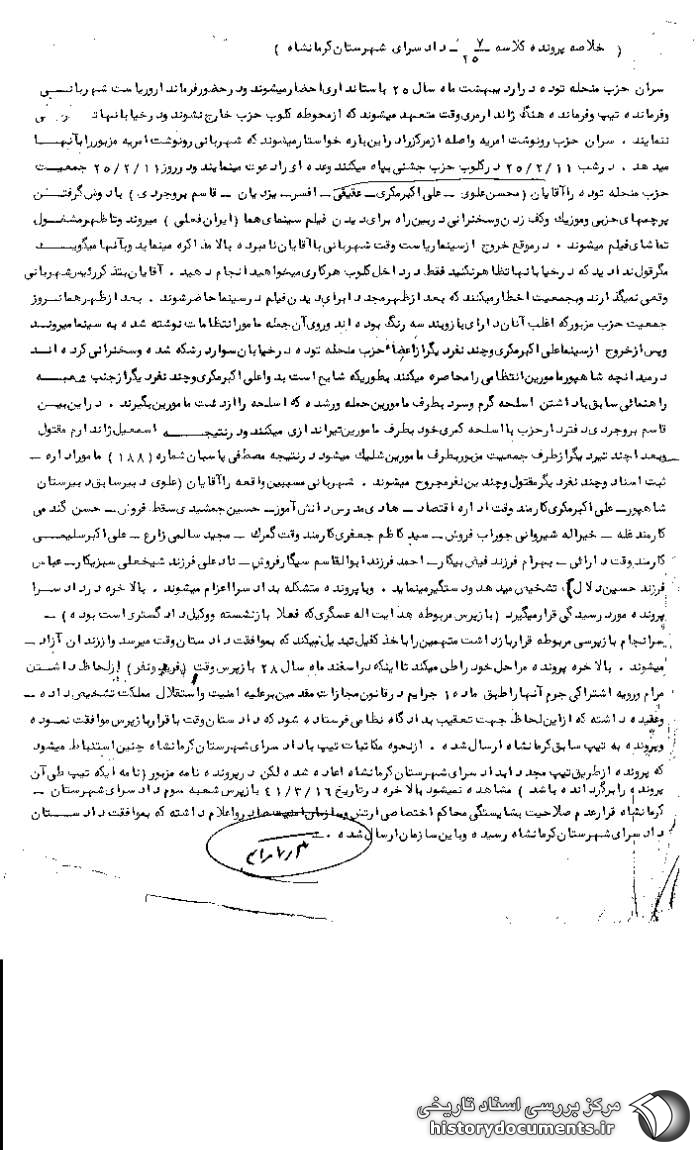 ( خلاصه پرونده کلاسه ۷/۲۵ ــ دادسرای شهرستان کرمانشاه )
سران حزب منحله توده در اردیبهشت ماه سال ۲۵ باستانداری احضار میشوند و در حضور فرماندار و ریاست شهربانی
و فرمانده تیپ و فرمانده هنگ ژاندارمری وقت متعهد میشوند که از محوطه کلوب حزب خارج نشوند و در خیابانها
ننمایند . سران حزب رونوشت امریه واصله از مرکز را در این باره خواستار میشوند که شهربانی رونوشت امریه مزبور را بآنها
میدهد . در شب ۲۵/۲/۱۱ در کلوب حزب جشنی بپاه میکنند و عده ای را دعوت مینمایند و در روز ۲۵/۲/۱۱ جمعیت
حزب منحله توده را آقایان ( محسن علوی ــ علی اکبر مکری ــ عقیقی ــ افسر ــ یزدیان ــ قاسم بروجردی ) بادوش گرفتن
پرچمهای حزبی و موزیک و کف زدن و سخنرانی در بین راه برای دیدن فیلم سینمای هما ( ایران فعلی ) میروند و تا ظهر مشغول
تماشای فیلم میشوند . در موقع خروج از سینما ریاست وقت شهربانی با آقایان نامبرده بالا مذاکره مینماید و بآنها میگوید
مگر قول ندادید که در خیابانها تظاهر نکنید فقط در داخل کلوب هر کاری میخواهید انجام دهید . آقایان بتذکر رئیس شهربانی
وقعی نمیگذارند و بجمعیت اخطار میکنند که بعد از ظهر مجددا برای دیدن فیلم در سینما حاضر شوند . بعد از ظهر همانروز
جمعیت حزب مزبور که اغلب آنان دارای بازوبند سه رنگ بوده اند و روی آن جمله مامور انتظامات نوشته شده به سینما میروند
و پس از خروج از سینما علی اکبر مکری و چند نفر دیگر از اعضاء حزب منحله توده در خیابان سوار درشکه شده و سخنرانی کرده اند
در میدانچه شاهپور مامورین انتظامی را محاصره میکنند بطوریکه شایع است بدوا علی اکبر مکری و چند نفر دیگر از جنب
راهنمائی سابق با داشتن اسلحه گرم و سرد بطرف مامورین حمله ور شده که اسلحه را از دست مامورین بگیرند . در این بین
قاسم بروجردی دفتردار حزب با اسلحه کمری خود بطرف مامورین تیراندازی میکنند و در نتیجه اسمعیل ژاندارم مقتول
و بعدا چند تیر دیگر از طرف جمعیت مزبور بطرف مامورین شلیک میشود در نتیجه مصطفی پاسبان شماره ( ۱۸۸ ) مامور اداره ــ
ثبت اسناد و چند نفر دیگر مقتول و چندین نفر مجروح میشوند . شهربانی مسببین واقعه را آقایان ( علوی دبیر سابق دبیرستان
شاهپور ــ علی اکبر مکری کارمند وقت اداره اقتصاد ــ هادی مدرس دانش آموز ــ حسین جمشیدی سقط فروش ــ حسن گندمی
کارمند غله ــ خیراله شیروانی جوراب فروش ــ سید کاظم جعفری کارمند وقت گمرک ــ مجید سالمی زارع ــ علی اکبر سلیمی
کارمند وقت دارائی ــ بهرام فرزند فیض بیکار ــ احمد فرزند ابوالقاسم سیگار فروش ــ نادعلی فرزند شیخعلی سبزیکار ــ عباس
فرزند حسین دلال ) تشخیص میدهد و دستگیر مینماید . و با پرونده متشکله بدادسرا اعزام میشوند . بالاخره در دادسرا
پرونده مورد رسیدگی قرار میگیرد ( بازپرس مربوطه هدایت اله عسگری که فعلا بازنشسته و وکیل دادگستری است بوده ) ــ
سرانجام بازپرسی مربوطه قرار بازداشت متهمین را باخذ کفیل تبدیل میکند که بموافقت دادستان وقت میرسد و از زندان آزاد ــ
میشوند . بالاخره پرونده مراحل خود را طی میکند تا اینکه در اسفند ماه سال ۲۸ بازپرس وقت ( ) از لحاظ داشتن
مرام و رویه اشتراکی جرم آنها را طبق ماده ۱۵ جرایم در قانون مجازات مقدمین بر علیه امنیت و استقلال مملکت تشخیص داده ــ
و عقیده داشته که از این لحاظ جهت تعقیب بدادگاه نظامی فرستاده شود که دادستان وقت با قرار بازپرس موافقت نموده
و پرونده به تیپ سابق کرمانشاه ارسال شده . از نحوه مکاتبات تیپ با دادسرای شهرستان کرمانشاه چنین استنباط میشود
که پرونده از طریق تیپ مجددا بدادسرای شهرستان کرمانشاه اعاده شده لکن در پرونده نامه مزبور ( نامه ایکه تیپ طی آن
پرونده را برگردانده باشد ) مشاهده نمیشود بالاخره در تاریخ ۴۱/۳/۱۶ بازپرس شعبه سوم دادسرای شهرستان ــ
کرمانشاه قرار عدم صلاحیت بشایستگی محاکم اختصاصی ارتش و سازمان امنیت صادر و اعلام داشته که بموافقت دادستان
دادسرای شهرستان کرمانشاه رسیده و باین سازمان ارسال شده .
مرکز بررسی اسناد تاریخی
historydocuments.ir